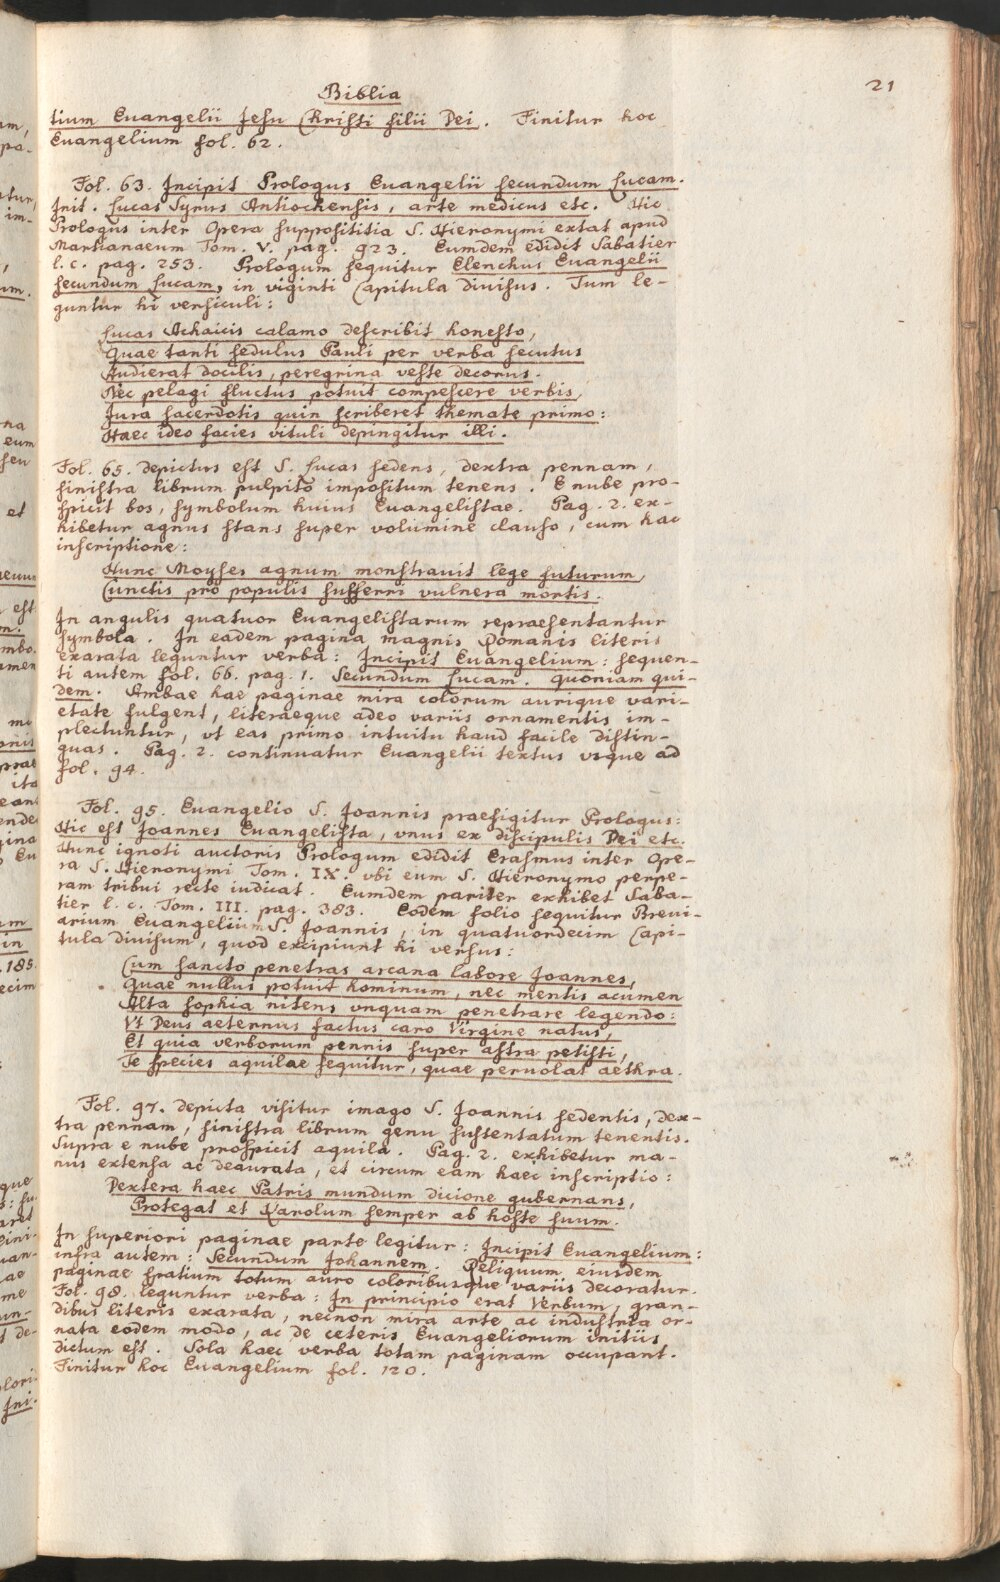 Biblia
21
tium Euangelii Jesu Christi filii Dei. Finitur hoc
Euangelium fol. 62.
Fol. 63. Incipit Prologus Euangelii secundum Lucam.
Init. Lucas Syrus Antiochensis, arte medicus etc. Hic
Prologus inter Opera supposititia S. Hieronymi extat apud
Martianaeum Tom. V. pag. 923. Eumdem edidit Sabatier
l. c. pag. 253. Prologum sequitur Elenchus Euangelii
secundum Lucam, in viginti Capitula diuisus. Tum le-
guntur hi versiculi:
Lucas Achaicis calamo describit honesto,
Quae tanti sedulus Pauli per verba secutus
Audierat docilis, peregrina veste decorus.
Nec pelagi fluctus potuit compescere verbis,
Jura sacerdotis quin scriberet themate primo:
Haec ideo facies vituli depingitur illi.
Fol. 65. depictus est S. Lucas sedens, dextra pennam,
sinistra librum pulpito impositum tenens. E nube pro-
spicit bos, symbolum huius Euangelistae. Pag. 2. ex-
hibetur agnus stans super volumine clauso, cum hac
inscriptione:
Hunc Moyses agnum monstrauit lege futurum,
Cunctis pro populis sufferri vulnera mortis.
In angulis quatuor Euangelistarum repraesentantur
symbola. In eadem pagina magnis Romanis literis
exarata leguntur verba: Incipit Euangelium: sequen-
ti autem fol. 66. pag. 1. Secundum Lucam. Quoniam qui-
dem. Ambae hae paginae mira colorum aurique vari-
etate fulgent, literaeque adeo variis ornamentis im-
plectuntur, vt eas primo intuitu haud facile distin-
guas. Pag. 2. continuatur Euangelii textus vsque ad
fol. 94.
Fol. 95. Euangelio S. Joannis praefigitur Prologus:
Hic est Joannes Euangelista, vnus ex discipulis Dei etc.
Hunc ignoti auctoris Prologum edidit Erasmus inter Ope-
ra S. Hieronymi Tom. IX. vbi eum S. Hieronymo perpe-
ram tribui recte iudicat. Eumdem pariter exhibet Saba-
tier l. c. Tom. III. pag. 383. Eodem folio sequitur Breui-
arium Euangelii S. Joannis, in quatuordecim Capi-
tula diuisum, quod excipiunt hi versus:
Cum sancto penetras arcana labore Joannes,
Quae nullus potuit hominum, nec mentis acumen
Alta sophia nitens vnquam penetrare legendo:
Vt Deus aeternus factus caro Virgine natus,
Et quia verborum pennis super astra petisti,
Te species aquilae sequitur, quae peruolat aethra.
Fol. 97. depicta visitur imago S. Joannis sedentis, dex-
tra pennam, sinistra librum genu sustentatum tenentis.
Supra e nube prospicit aquila. Pag. 2. exhibetur ma-
nus extensa ac deaurata, et circum eam haec inscriptio:
Dextera haec Patris mundum dicione gubernans,
Protegat et Karolum semper ab hoste suum.
In superiori paginae parte legitur: Incipit Euangelium:
infra autem: Secundum Johannem. Reliquum eiusdem
paginae spatium totum auro coloribusque variis decoratur.
Fol. 98. leguntur verba: In principio erat Verbum, gran-
dibus literis exarata, necnon mira arte ac industria or-
nata eodem modo, ac de ceteris Euangeliorum initiis
dictum est. Sola haec verba totam paginam occupant.
Finitur hoc Euangelium fol. 120.